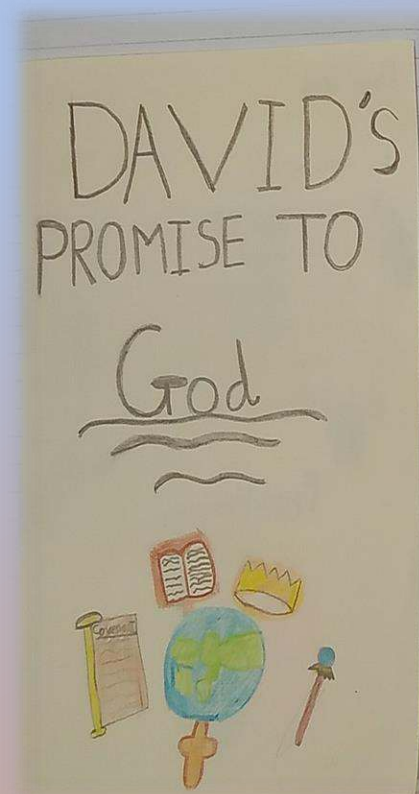 DAVID'S
PROMISE TO
God
Covenant